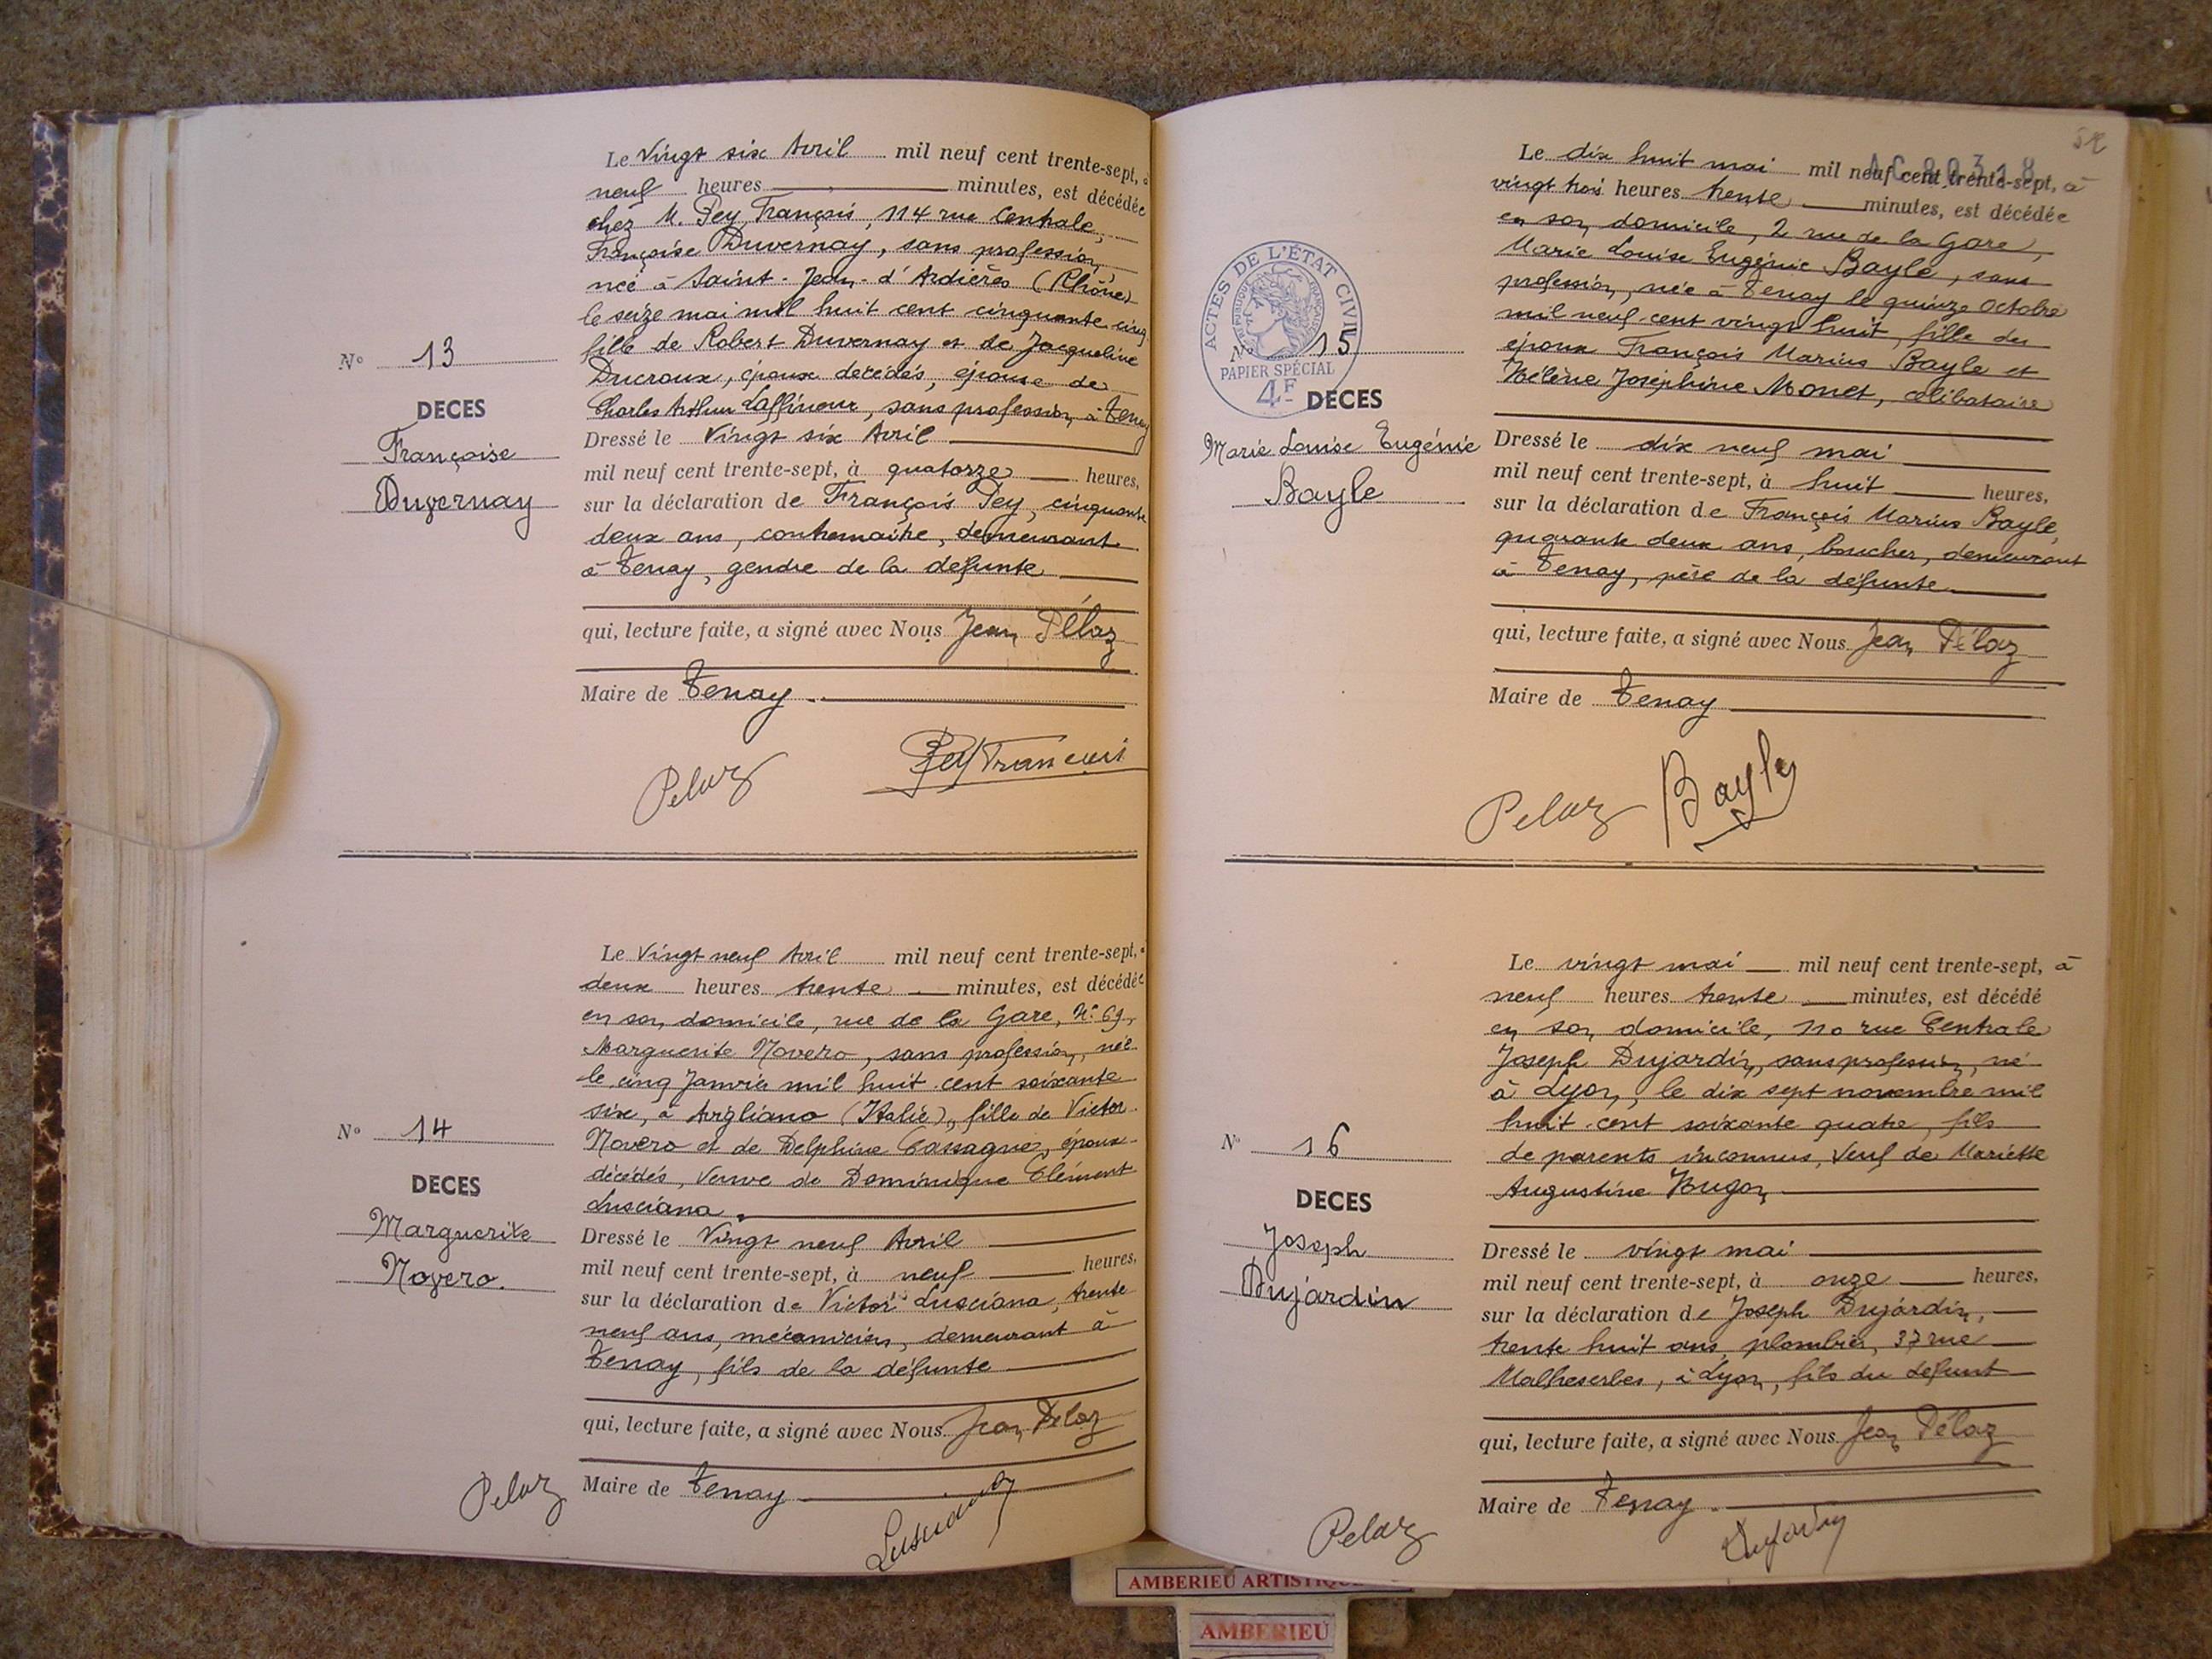 Le Vingt six Avril mil neuf cent trente-sept, à
neuf heures minutes, est décédée
chez M. Pey François, 114 rue Centrale,
Françoise Duvernay, sans profession,
née à Saint-Jean-d'Ardières (Rhône)
le seize mai mil huit cent cinquante cinq
fille de Robert Duvernay et de Jacqueline
Ducroux, époux décédés, épouse de
Charles Arthur Laffineur, sans profession à Tenay
N° 13
DECES
Françoise
Duvernay
Dressé le Vingt six Avril
mil neuf cent trente-sept, à quatorze heures,
sur la déclaration de François Pey, cinquante
deux ans, contremaître, demeurant
à Tenay, gendre de la défunte
qui, lecture faite, a signé avec Nous Jean Pélaz
Maire de Tenay
Pelaz Pey François
Le Vingt neuf Avril mil neuf cent trente-sept, à
deux heures trente minutes, est décédée
en son domicile, rue de la Gare, N° 69,
Marguerite Novero, sans profession, née
le cinq Janvier mil huit cent soixante
six, à Avigliano (Italie), fille de Victor
Novero et de Delphine Cassagne, époux
décédés, Veuve de Dominique Clément
Lusciana
N° 14
DECES
Marguerite
Novero.
Dressé le Vingt neuf Avril
mil neuf cent trente-sept, à neuf heures,
sur la déclaration de Victor Lusciana, trente
neuf ans, mécanicien, demeurant à
Tenay, fils de la défunte
qui, lecture faite, a signé avec Nous Jean Pelaz
Maire de Tenay
Pelaz Lusciana
52
AC 80318
Le dix huit mai mil neuf cent trente-sept, à
vingt trois heures trente minutes, est décédée
en son domicile, 2 rue de la Gare,
Marie Louise Eugénie Bayle, sans
profession, née à Tenay le quinze Octobre
mil neuf cent vingt huit, fille des
époux François Marius Bayle et
Hélène Joséphine Monet, célibataire
ACTES DE L'ÉTAT CIVIL
RÉPUBLIQUE FRANÇAISE
N° 15
PAPIER SPÉCIAL
4F
DECES
Marie Louise Eugénie
Bayle
Dressé le dix neuf mai
mil neuf cent trente-sept, à huit heures,
sur la déclaration de François Marius Bayle,
quarante deux ans, boucher, demeurant
à Tenay, père de la défunte
qui, lecture faite, a signé avec Nous Jean Pélaz
Maire de Tenay
Pelaz Bayle
Le vingt mai mil neuf cent trente-sept, à
neuf heures trente minutes, est décédé
en son domicile, 110 rue Centrale
Joseph Dujardin, sans profession, né
à Lyon, le dix sept novembre mil
huit cent soixante quatre, fils
de parents inconnus, Veuf de Mariette
Augustine Hugon
N° 16
DECES
Joseph
Dujardin
Dressé le vingt mai
mil neuf cent trente-sept, à onze heures,
sur la déclaration de Joseph Dujardin,
trente huit ans, plombier, 37 rue
Malheserbes, à Lyon, fils du défunt
qui, lecture faite, a signé avec Nous Jean Pélaz
Maire de Tenay
Pelaz Dujardin
AMBERIEU ARTISTIQUE
AMBERIEU